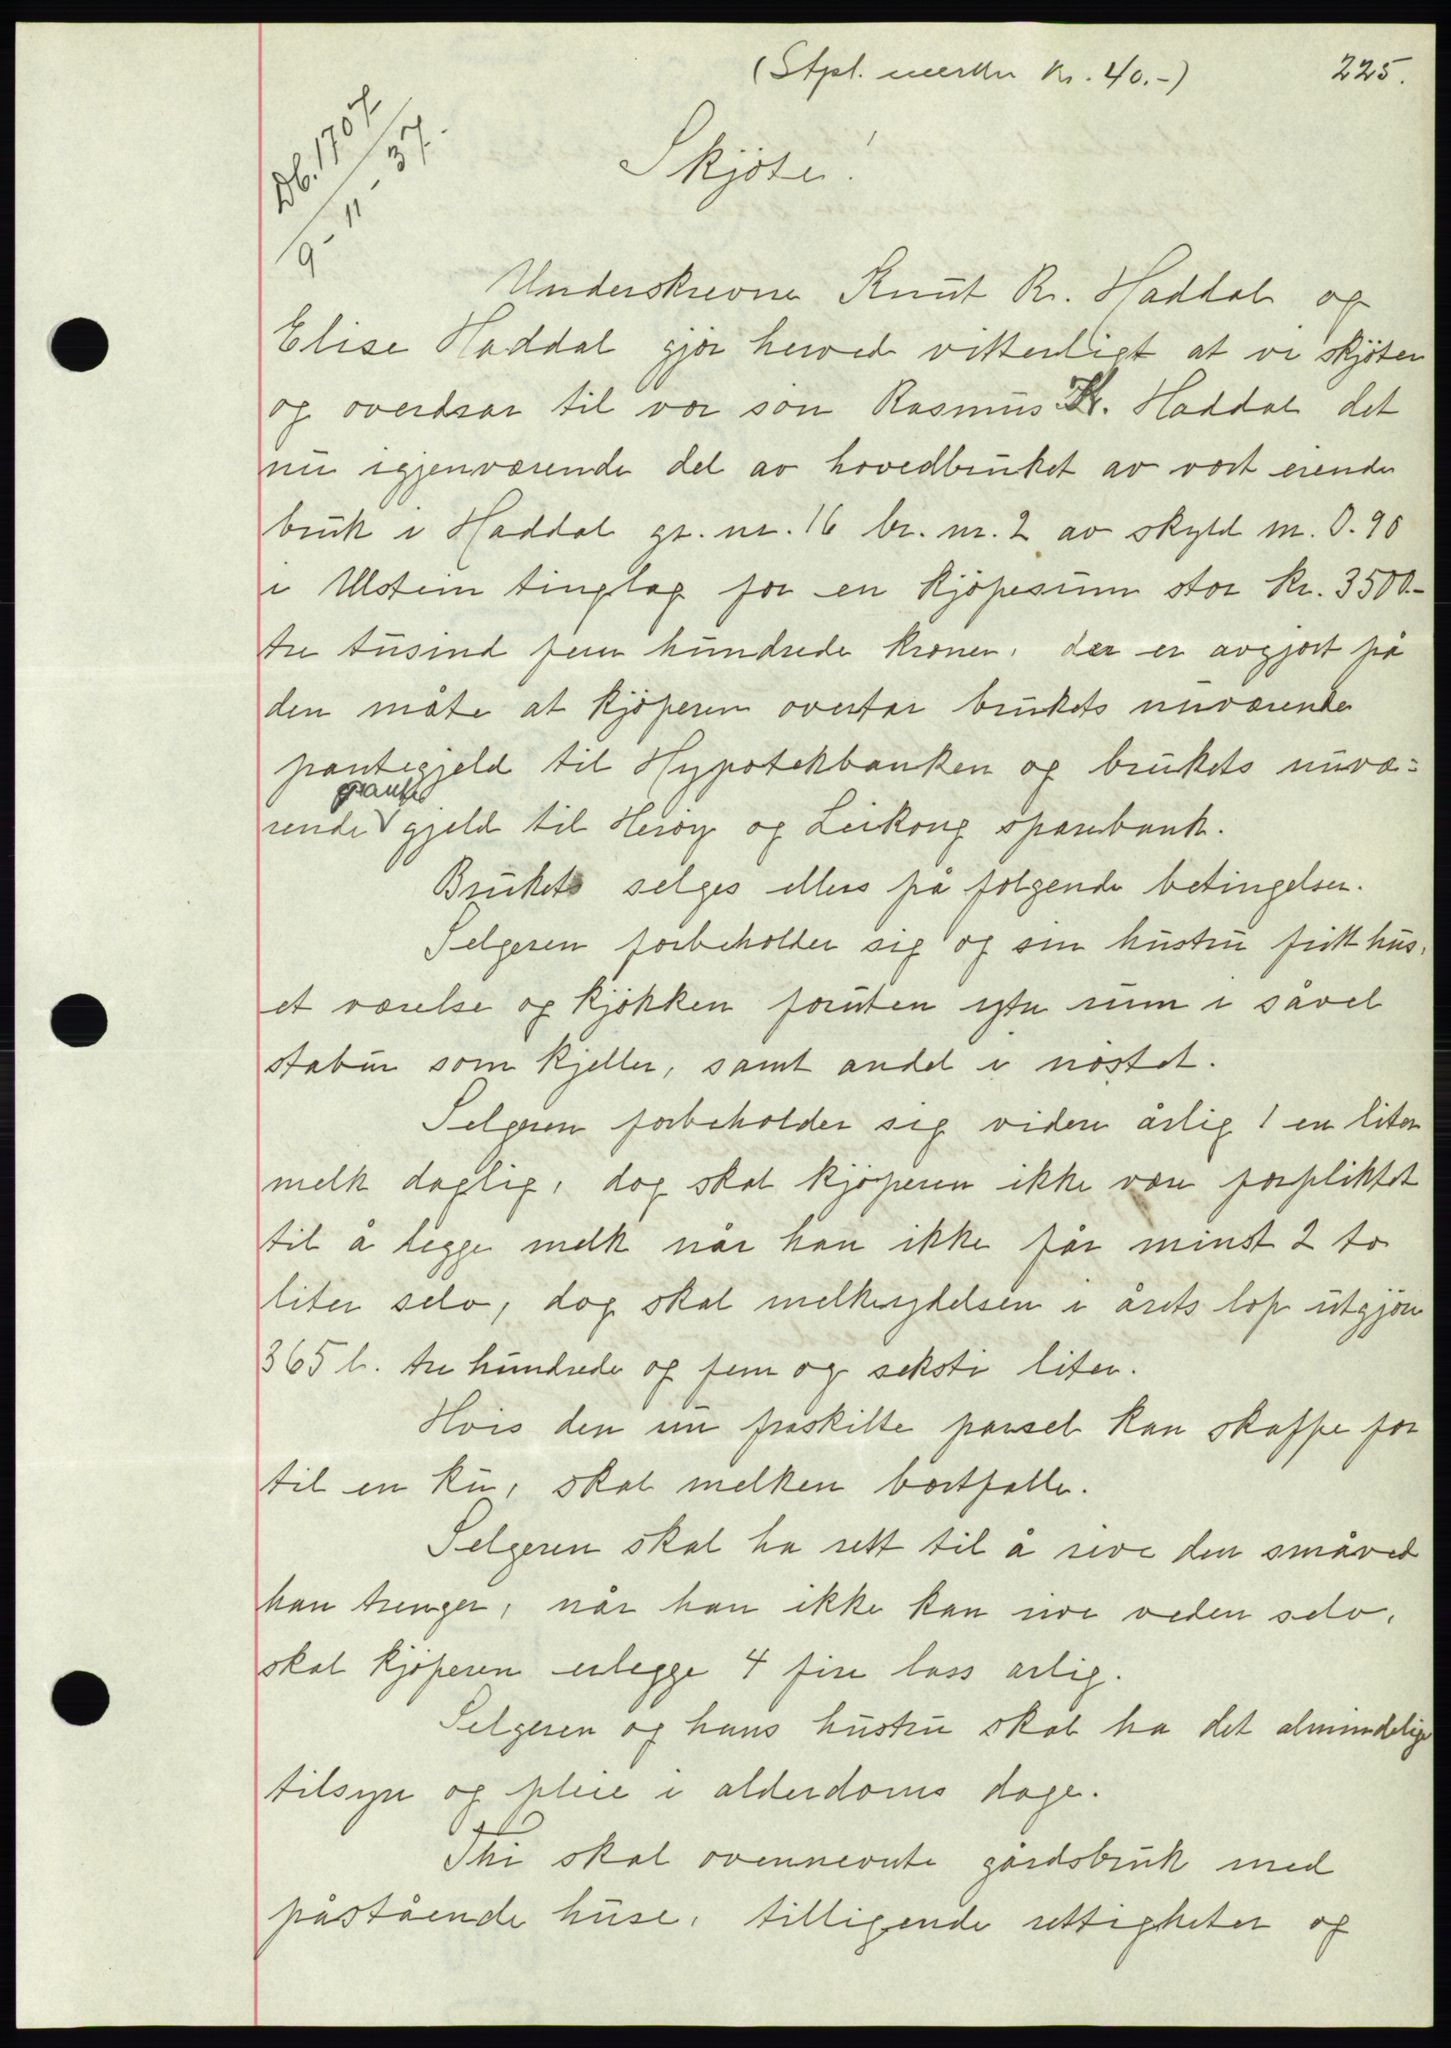 (Stpl. merker kr. 40.-)
225.
Db. 1707
9-11-37.
Skjøte!
Underskrevne Knut R. Haddal og
Elise Haddal gjør herved vitterligt at vi skjøter
og overdrar til vor søn Rasmus K. Haddal det
nu igjenværende del av hovedbruket av vort eiende
bruk i Haddal gr. nr. 16 br. nr. 2 av skyld m. 0.90
i Ulstein tinglag for en kjøpesum stor kr. 3500.-
tre tusind fem hundrede kroner, der er avgjort på
den måte at kjøperen overtar brukets nuværende
pantegjeld til Hypotekbanken og brukets nuvæ=
rende pante gjeld til Herøy og Leikong sparebank.
Brukets selges ellers på følgende betingelser.
Selgeren forbeholder sig og sin hustru fritt hus,
et værelse og kjøkken foruten ytre rum i såvel
stabur som kjeller, samt andel i nøstet.
Selgeren forbeholder sig videre årlig 1 en liter
melk daglig, dog skal kjøperen ikke være forpliktet
til å legge melk når han ikke får minst 2 to
liter selv, dog skal melkeydelsen i årets løp utgjøre
365 l. tre hundrede og fem og seksti liter.
Hvis den nu fraskilte parsel kan skaffe for
til en ku, skal melken bortfalle.
Selgeren skal ha rett til å rive den småved
han trenger, når han ikke kan rive veden selv,
skal kjøperen erlegge 4 fire lass årlig.
Selgeren og hans hustru skal ha det almindelige
tilsyn og pleie i alderdoms dage.
Thi skal ovennevnte gårdsbruk med
påstående huse, tilligende rettigheter og